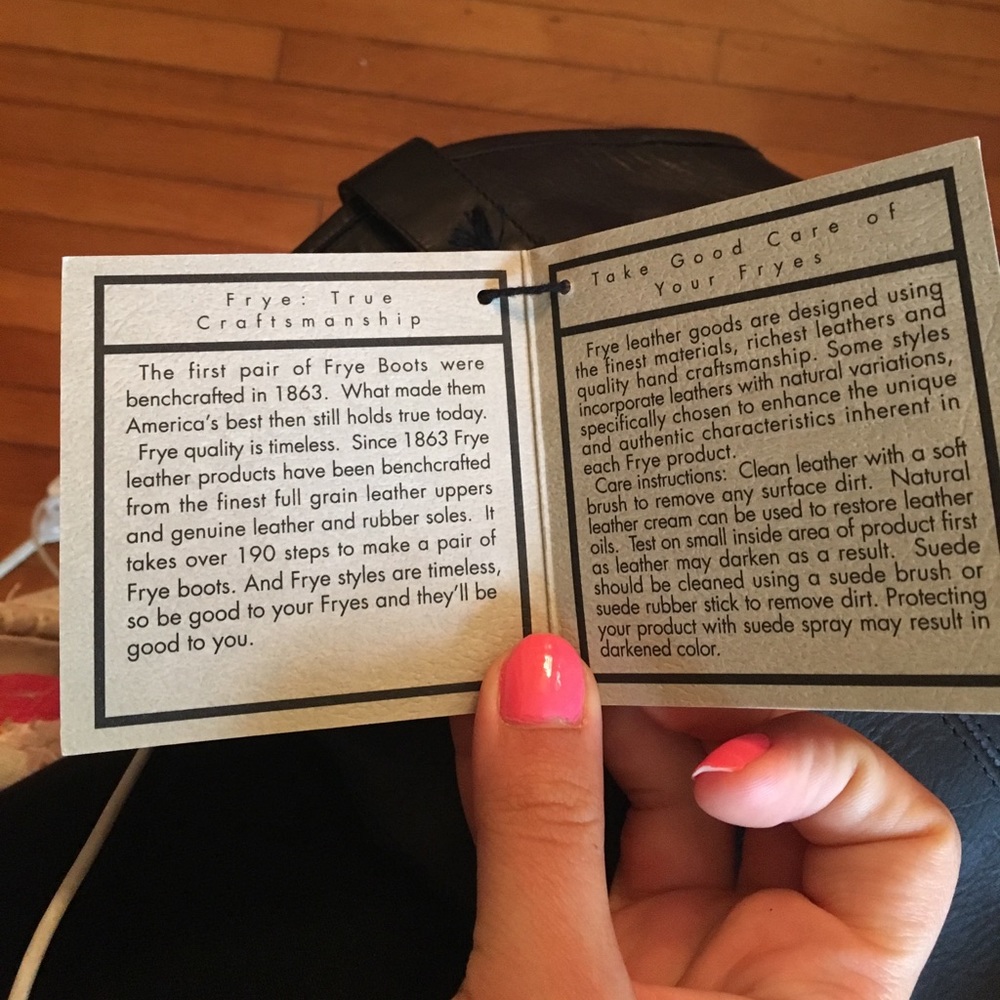 Frye: True
Craftsmanship
The first pair of Frye Boots were
benchcrafted in 1863. What made them
America's best then still holds true today.
Frye quality is timeless. Since 1863 Frye
leather products have been benchcrafted
from the finest full grain leather uppers
and genuine leather and rubber soles. It
takes over 190 steps to make a pair of
Frye boots. And Frye styles are timeless,
so be good to your Fryes and they'll be
good to you.
Take Good Care of
Your Fryes
Frye leather goods are designed using
the finest materials, richest leathers and
quality hand craftsmanship. Some styles
incorporate leathers with natural variations,
specifically chosen to enhance the unique
and authentic characteristics inherent in
each Frye product.
Care instructions: Clean leather with a soft
brush to remove any surface dirt. Natural
leather cream can be used to restore leather
oils. Test on small inside area of product first
as leather may darken as a result. Suede
should be cleaned using a suede brush or
suede rubber stick to remove dirt. Protecting
your product with suede spray may result in
darkened color.